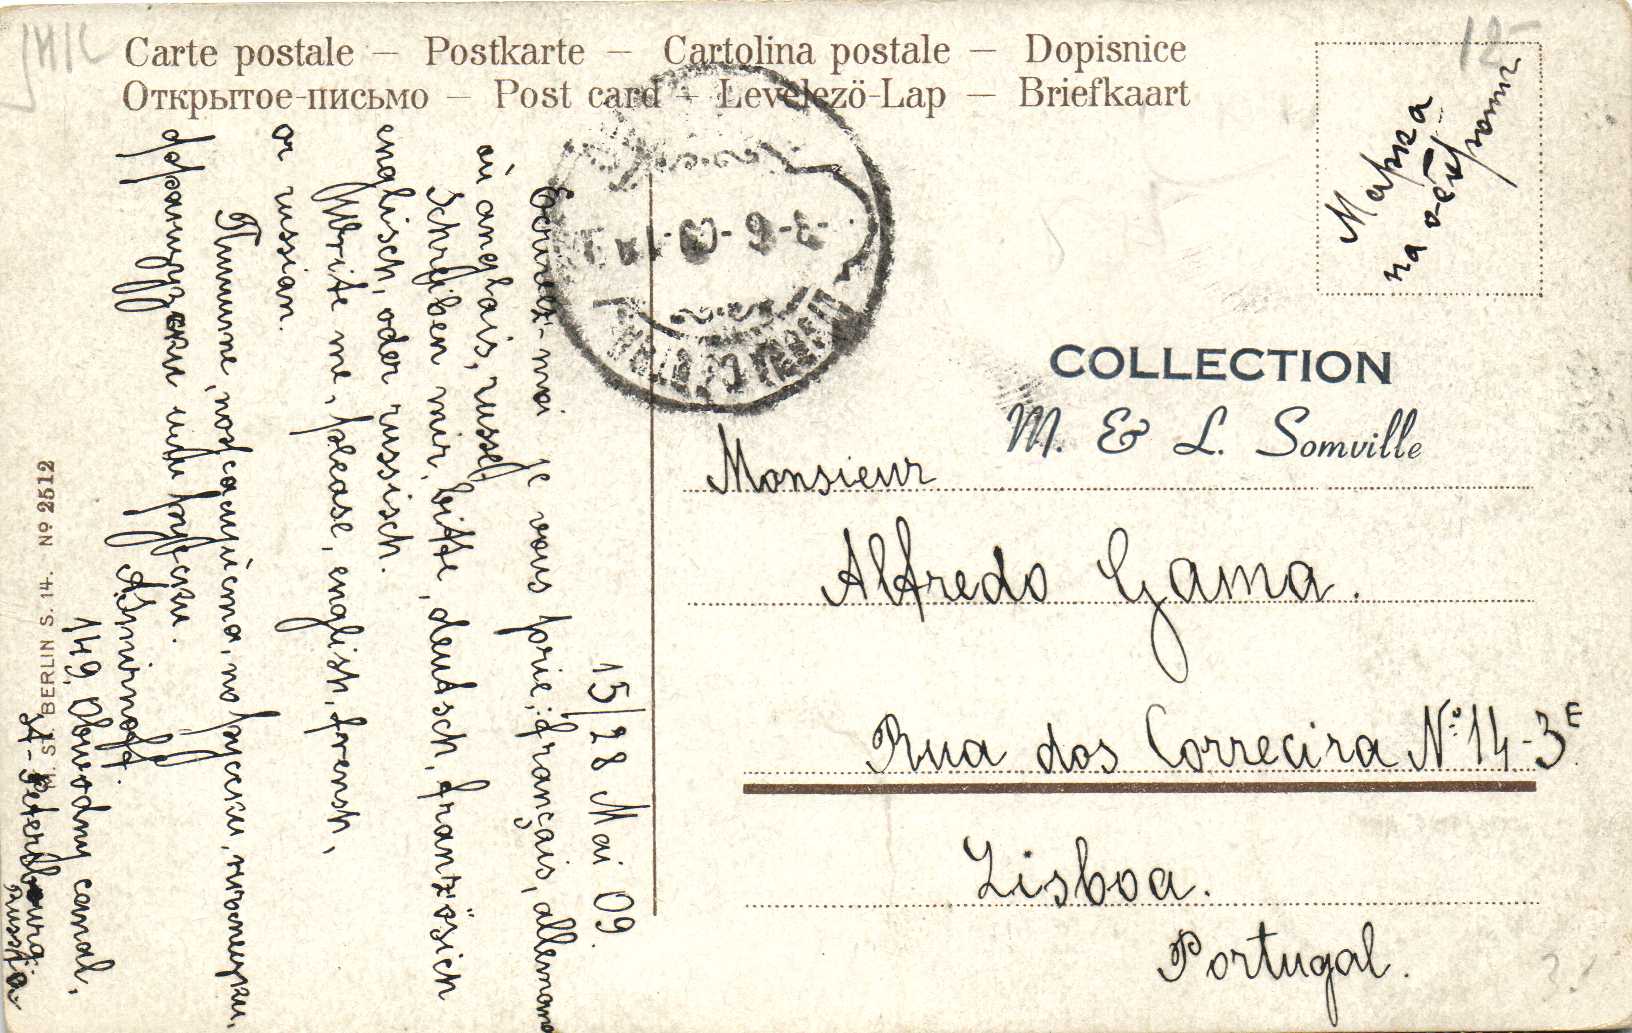 Carte postale — Postkarte — Cartolina postale — Dopisnice
Открытое-письмо — Post card — Levelezö-Lap — Briefkaart
Марка
на об.
COLLECTION
M. & L. Somville
Monsieur
Alfredo Gama.
Rua dos Correeira Nº 14-3E
Lisboa.
Portugal.
15/28 Mai 09.
Ecrivez-moi je vous prie, français, allemand
où anglais, russe
Schreiben mir, bitte, deutsch, französich
englisch, oder russisch.
Write me, please, english, frensh,
or russian.
Пишите, пожалуйста, по русски, нѣмецки,
французски или русски.
A. Smirnoff.
149, Obwodny canal,
St-Petersbourg
Russia
M. S. BERLIN S. 14. Nº 2512
3-6-09
LISBOA CENTRAL
12-